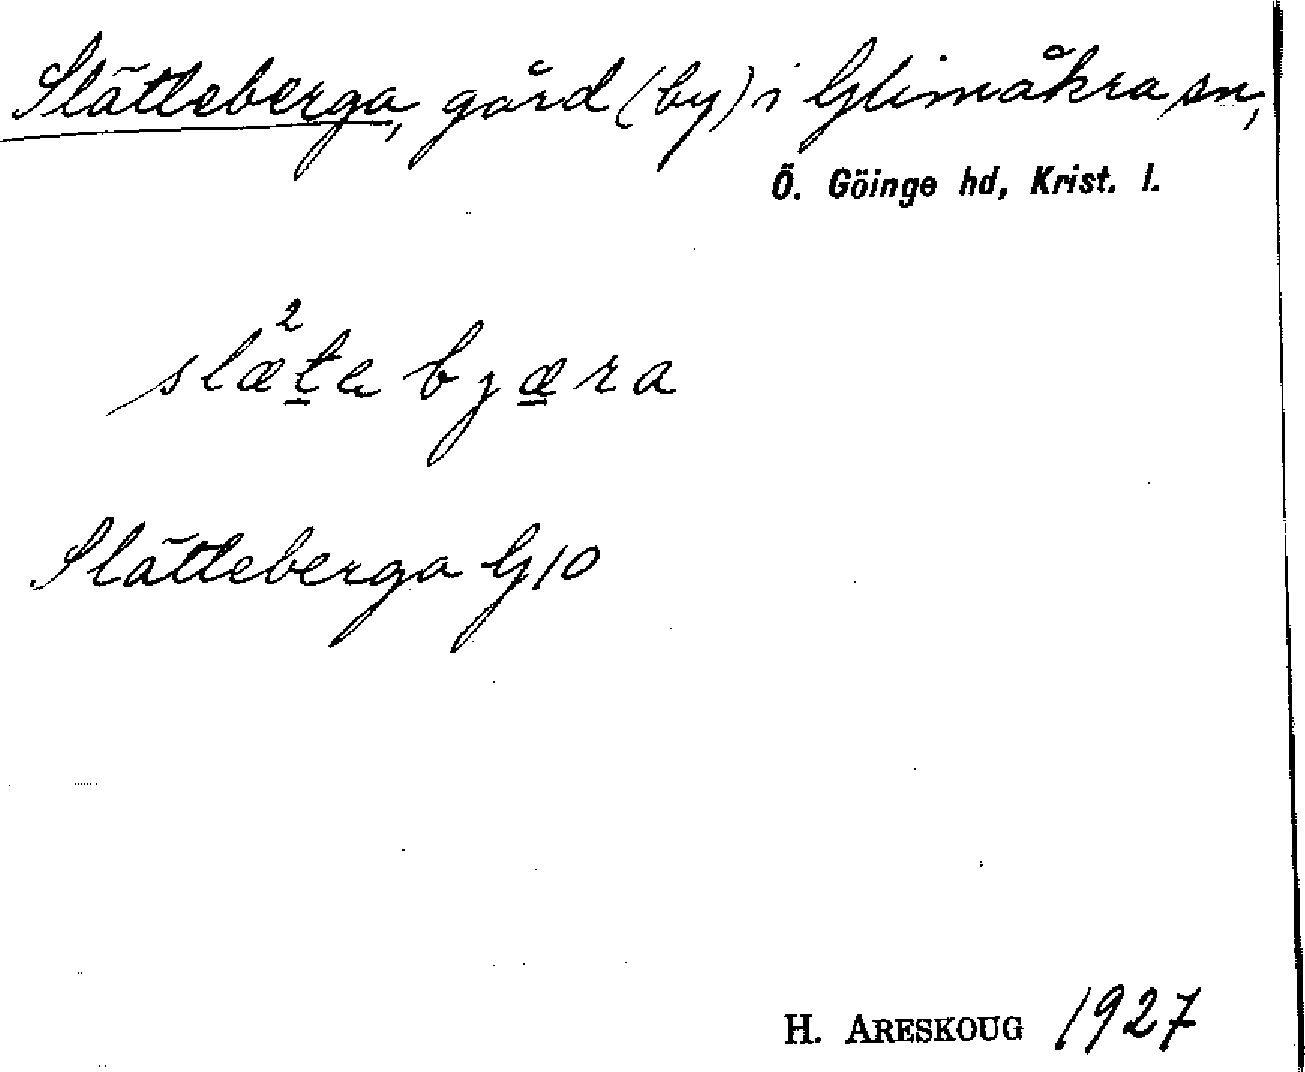 Slätteberga, gård (by) i Glimåkra sn,
Ö. Göinge hd, Krist. l.
2
slæta bjæra
Slätteberga G10
H. ARESKOUG 1927